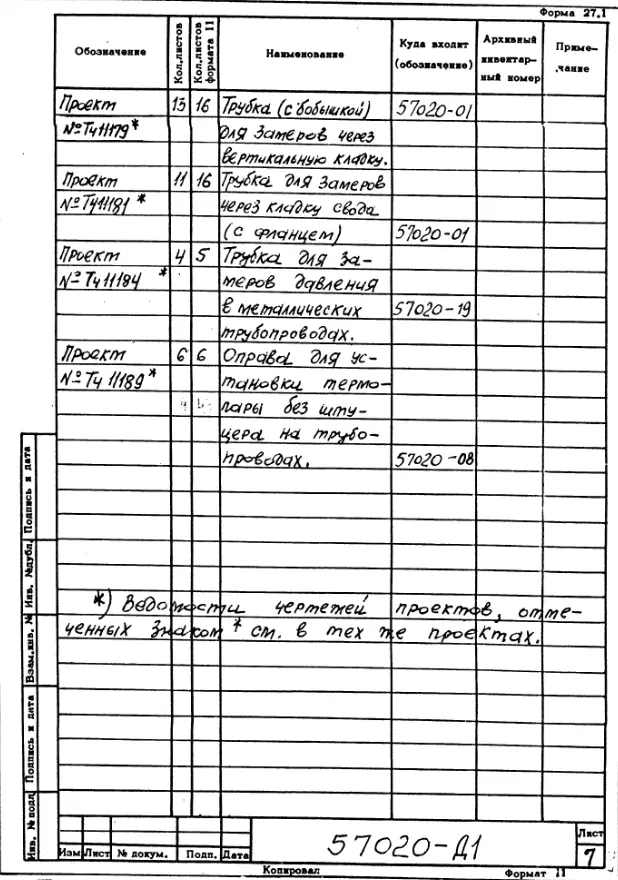 Форма 27.1
Обозначение Кол.листов Кол.листов формата 11 Наименование Куда входит (обозначение) Архивный инвентар- ный номер Приме- чание
Проект 13 16 Трубка (с бобышкой) 57020-01
№ТЧ11179* для замеров через
вертикальную кладку.
Проект 11 16 Трубка для замеров
№ТЧ11181 * через кладку свода
(с фланцем) 57020-01
Проект 4 5 Трубка для за-
№ТЧ11184 * меров давления
в металлических 57020-19
трубопроводах.
Проект 6 6 Оправа для ус-
№ТЧ11189* тановки термо-
пары без шту-
цера на трубо-
проводах. 57020-08
*) Ведомости чертежей проектов, отме-
ченных знаком * см. в тех же проектах.
Инв. № подл. Подпись и дата Взам.инв. № Инв. №дубл. Подпись и дата
57020-Д1
Лист
7
Изм Лист № докум. Подп. Дата
Копировал Формат 11